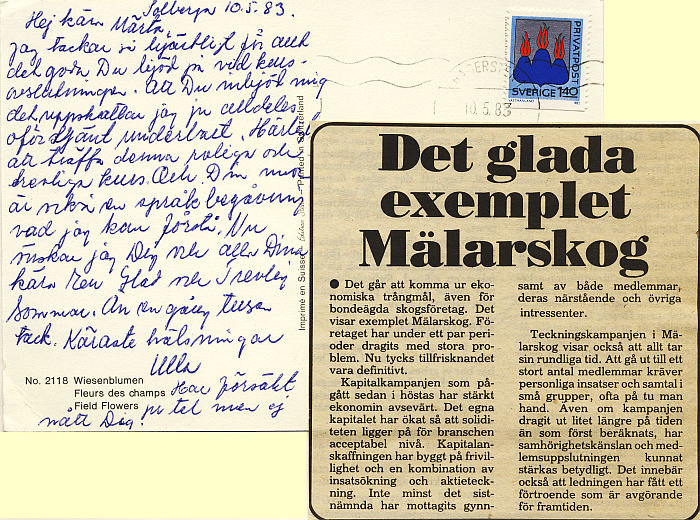 Solberga 10.5.83.
Hej kära Märta,
Jag tackar så hjärtligt för allt
det goda Du bjöd på vid kurs-
avslutningen. Att Du inbjöt mig
det uppskattar jag ju alldeles
oförtjänt underbart. Härligt
att träffa denna roliga och
trevliga kurs. Och Din man
är också en språkbegåvning
vad jag kan förstå. Nu
önskar jag Dig och alla Dina
kära en Glad och Trevlig
Sommar. Än en gång tusen
tack. Käraste hälsningar
Ulla
Har försökt
på tel men ej
nått Dig!
No. 2118 Wiesenblumen
Fleurs des champs
Field Flowers
Imprimé en Suisse
Printed in Switzerland
PRIVATPOST
SVERIGE 140
10.5.83
Det glada
exemplet
Mälarskog
● Det går att komma ur eko-
nomiska trångmål, även för
bondeägda skogsföretag. Det
visar exemplet Mälarskog. Fö-
retaget har under ett par peri-
oder dragits med stora pro-
blem. Nu tycks tillfrisknandet
vara definitivt.
Kapitalkampanjen som på-
gått sedan i höstas har stärkt
ekonomin avsevärt. Det egna
kapitalet har ökat så att solidi-
teten ligger på för branschen
acceptabel nivå. Kapitalan-
skaffningen har byggt på frivil-
lighet och en kombination av
insatsökning och aktieteck-
ning. Inte minst det sist-
nämnda har mottagits gynn-
samt av både medlemmar,
deras närstående och övriga
intressenter.
Teckningskampanjen i Mä-
larskog visar också att allt tar
sin rundliga tid. Att gå ut till ett
stort antal medlemmar kräver
personliga insatser och samtal i
små grupper, ofta på tu man
hand. Även om kampanjen
dragit ut litet längre på tiden
än som först beräknats, har
samhörighetskänslan och med-
lemsuppslutningen kunnat
stärkas betydligt. Det innebär
också att ledningen har fått ett
förtroende som är avgörande
för framtiden.